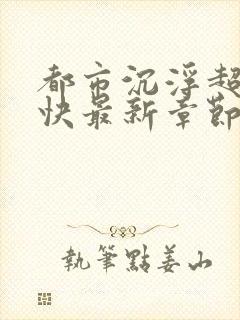 都市沉浮超
快最新章節
執筆點姜山